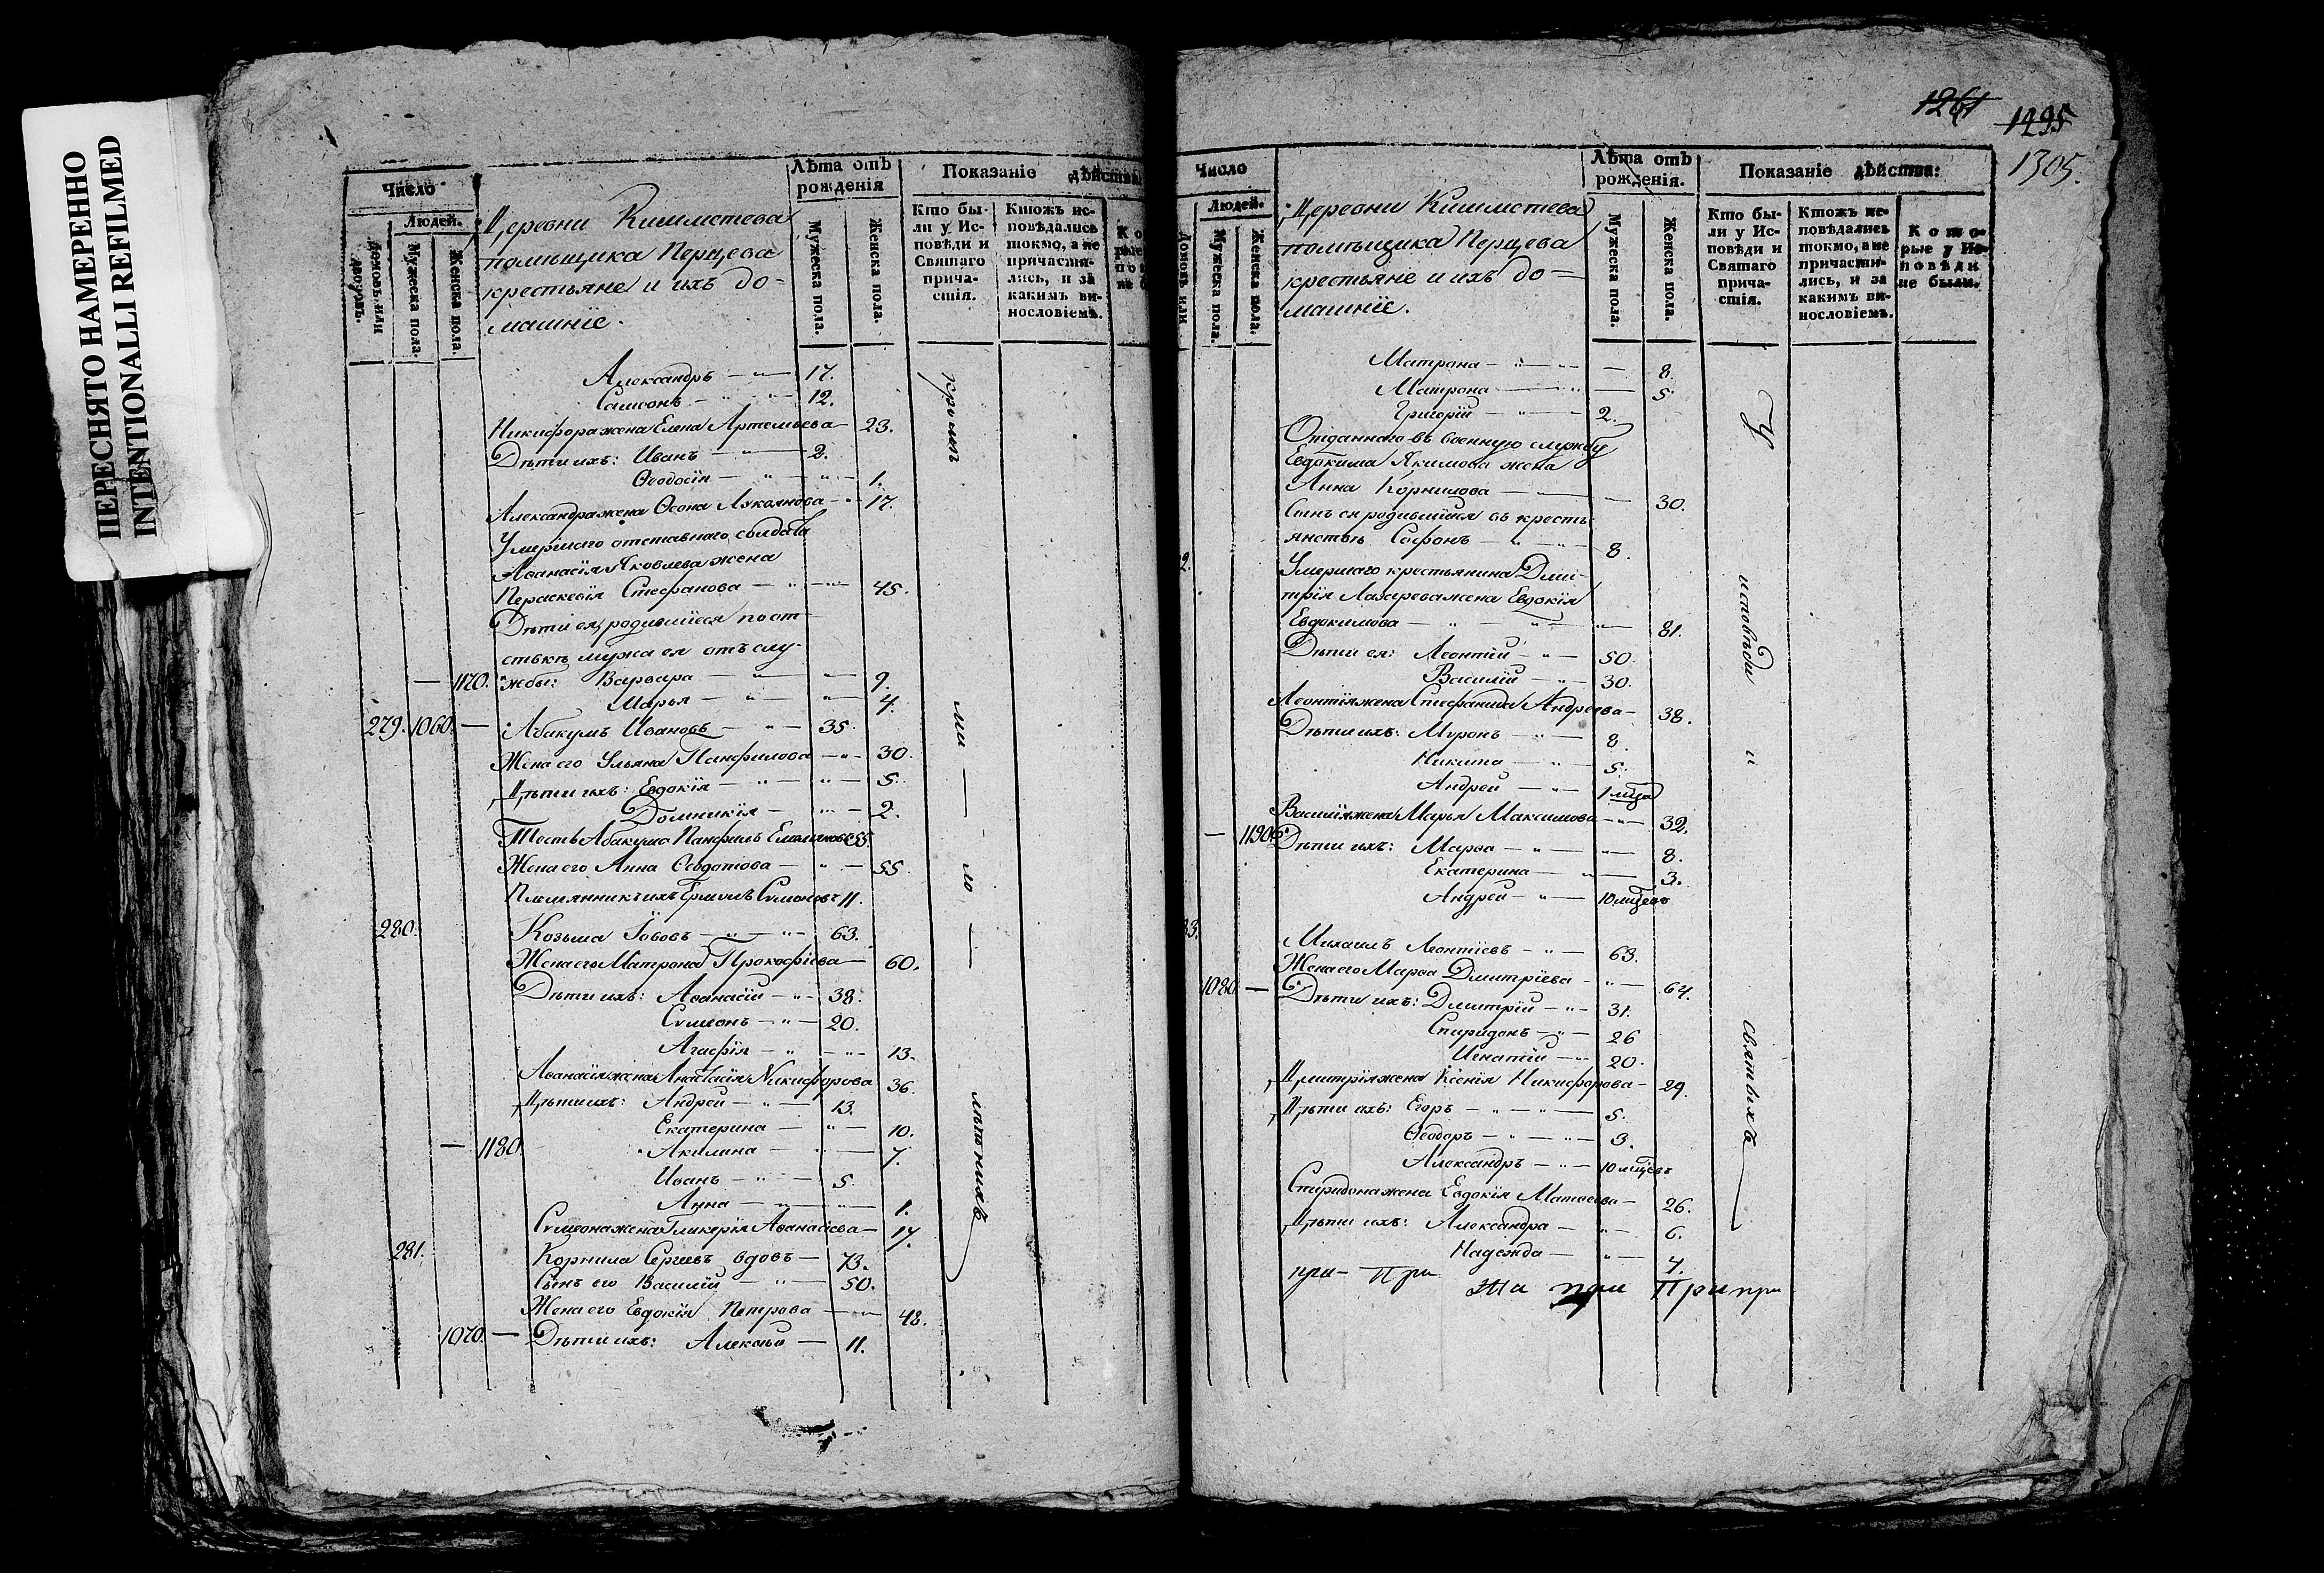 ПЕРЕСНЯТО НАМЕРЕННО
INTENTIONALLI REFILMED
Число
Людей.
Домовъ или дворовъ.
Мужеска пола.
Женска пола.
Деревни
помѣщика Перцева
крестьяне и ихъ до-
машніе.
Лѣта отъ рожденія
Мужеска пола.
Женска пола.
Показаніе дѣйства
Кто бы-
ли у Ис-
повѣди и
Святаго
прича-
стія.
Ктожъ ис-
повѣдались
токмо, а не
причасти-
лись, и за
какимъ ви-
нословіемъ.
Александръ — 17.
Самсонъ — 12.
Никифора жена Елена Артемьева 23.
Дѣти ихъ: Иванъ — 2.
Ѳеодосія — 1.
Александра жена Лукоянова — 17.
Умершаго отставнаго солдата
Аѳанасія Яковлева жена
Пераскевія Стефанова — 45.
Дѣти ея, родившіеся по от-
ставкѣ мужа ея отъ слу-
— 1170. жбы: Варвара — 9.
Марья — 4.
279. 1060. — Абакумъ Ивановъ — 35.
Жена его Ульяна Панфилова — 30.
Дѣти ихъ: Евдокія — 5.
Домникія — 2.
Тесть Абакума Панфилъ Емельяновъ 55.
Жена его Анна Ѳедотова — 55
Племянникъ ихъ Сѵмоновъ 11.
280. Козьма Іововъ — 63.
Жена его Матрона Прокофіева — 60.
Дѣти ихъ: Аѳанасій — 38.
Сѵмеонъ — 20.
Агафія — 13.
Аѳанасія жена Анастасія Никифорова 36.
Дѣти ихъ: Андрей — 13.
Екатерина — 10.
— 1180. Акилина — 7.
Иванъ — 5.
Анна — 1.
Сѵмеона жена Гликерія Аѳанасіева — 17.
281. Корнила Сергеевъ вдовъ — 73.
Сынъ его Василій — 50.
Жена его Евдокія Петрова — 48.
1070. — Дѣти ихъ: Алексѣй — 11.
1261
1295
1305.
Число
Людей.
Домовъ или
Мужеска пола.
Женска пола.
Деревни
помѣщика Перцева
крестьяне и ихъ до-
машніе.
Лѣта отъ рожденія.
Мужеска пола.
Женска пола.
Показаніе дѣйства:
Кто бы-
ли у Ис-
повѣди и
Святаго
прича-
стія.
Ктожъ ис-
повѣдались
токмо, а не
причасти-
лись, и за
какимъ ви-
нословіемъ.
Кото-
рые у Ис-
повѣди
не были.
Матрона — 8.
Матрона — 5.
Григорій — 2.
Отданнаго въ военную службу
Евдокима Якимова жена
Анна Корнилова — 30.
Сынъ ея родившійся въ кресть-
янствѣ Софонъ — 8.
2. Умершаго крестьянина Дми-
трія Лазарева жена Евдокія
Евдокимова — 81.
Дѣти ея: Леонтій — 50.
Василій — 30.
Леонтія жена Стефанида Андреева — 38.
Дѣти ихъ: Мѵронъ — 8.
Никита — 5.
Андрей — 1
Василія жена Марья Максимова — 32.
— 1190. Дѣти ихъ: Марѳа — 8.
Екатерина — 3.
Андрей — 10 мцевъ
83. Михаилъ Леонтіевъ — 63.
Жена его Марѳа Дмитріева — 64.
1080. — Дѣти ихъ: Дмитрій — 31.
Спиридонъ — 26
Игнатій — 20.
Дмитрія жена Ксенія Никифорова — 29.
Дѣти ихъ: Егоръ — 5.
Ѳеодоръ — 3.
Александръ — 10 мцевъ
Спиридона жена Евдокія Матѳеева — 26.
Дѣти ихъ: Александра — 6.
Надежда — 4.
У
исповѣди
и
святыхъ
при- При при При при